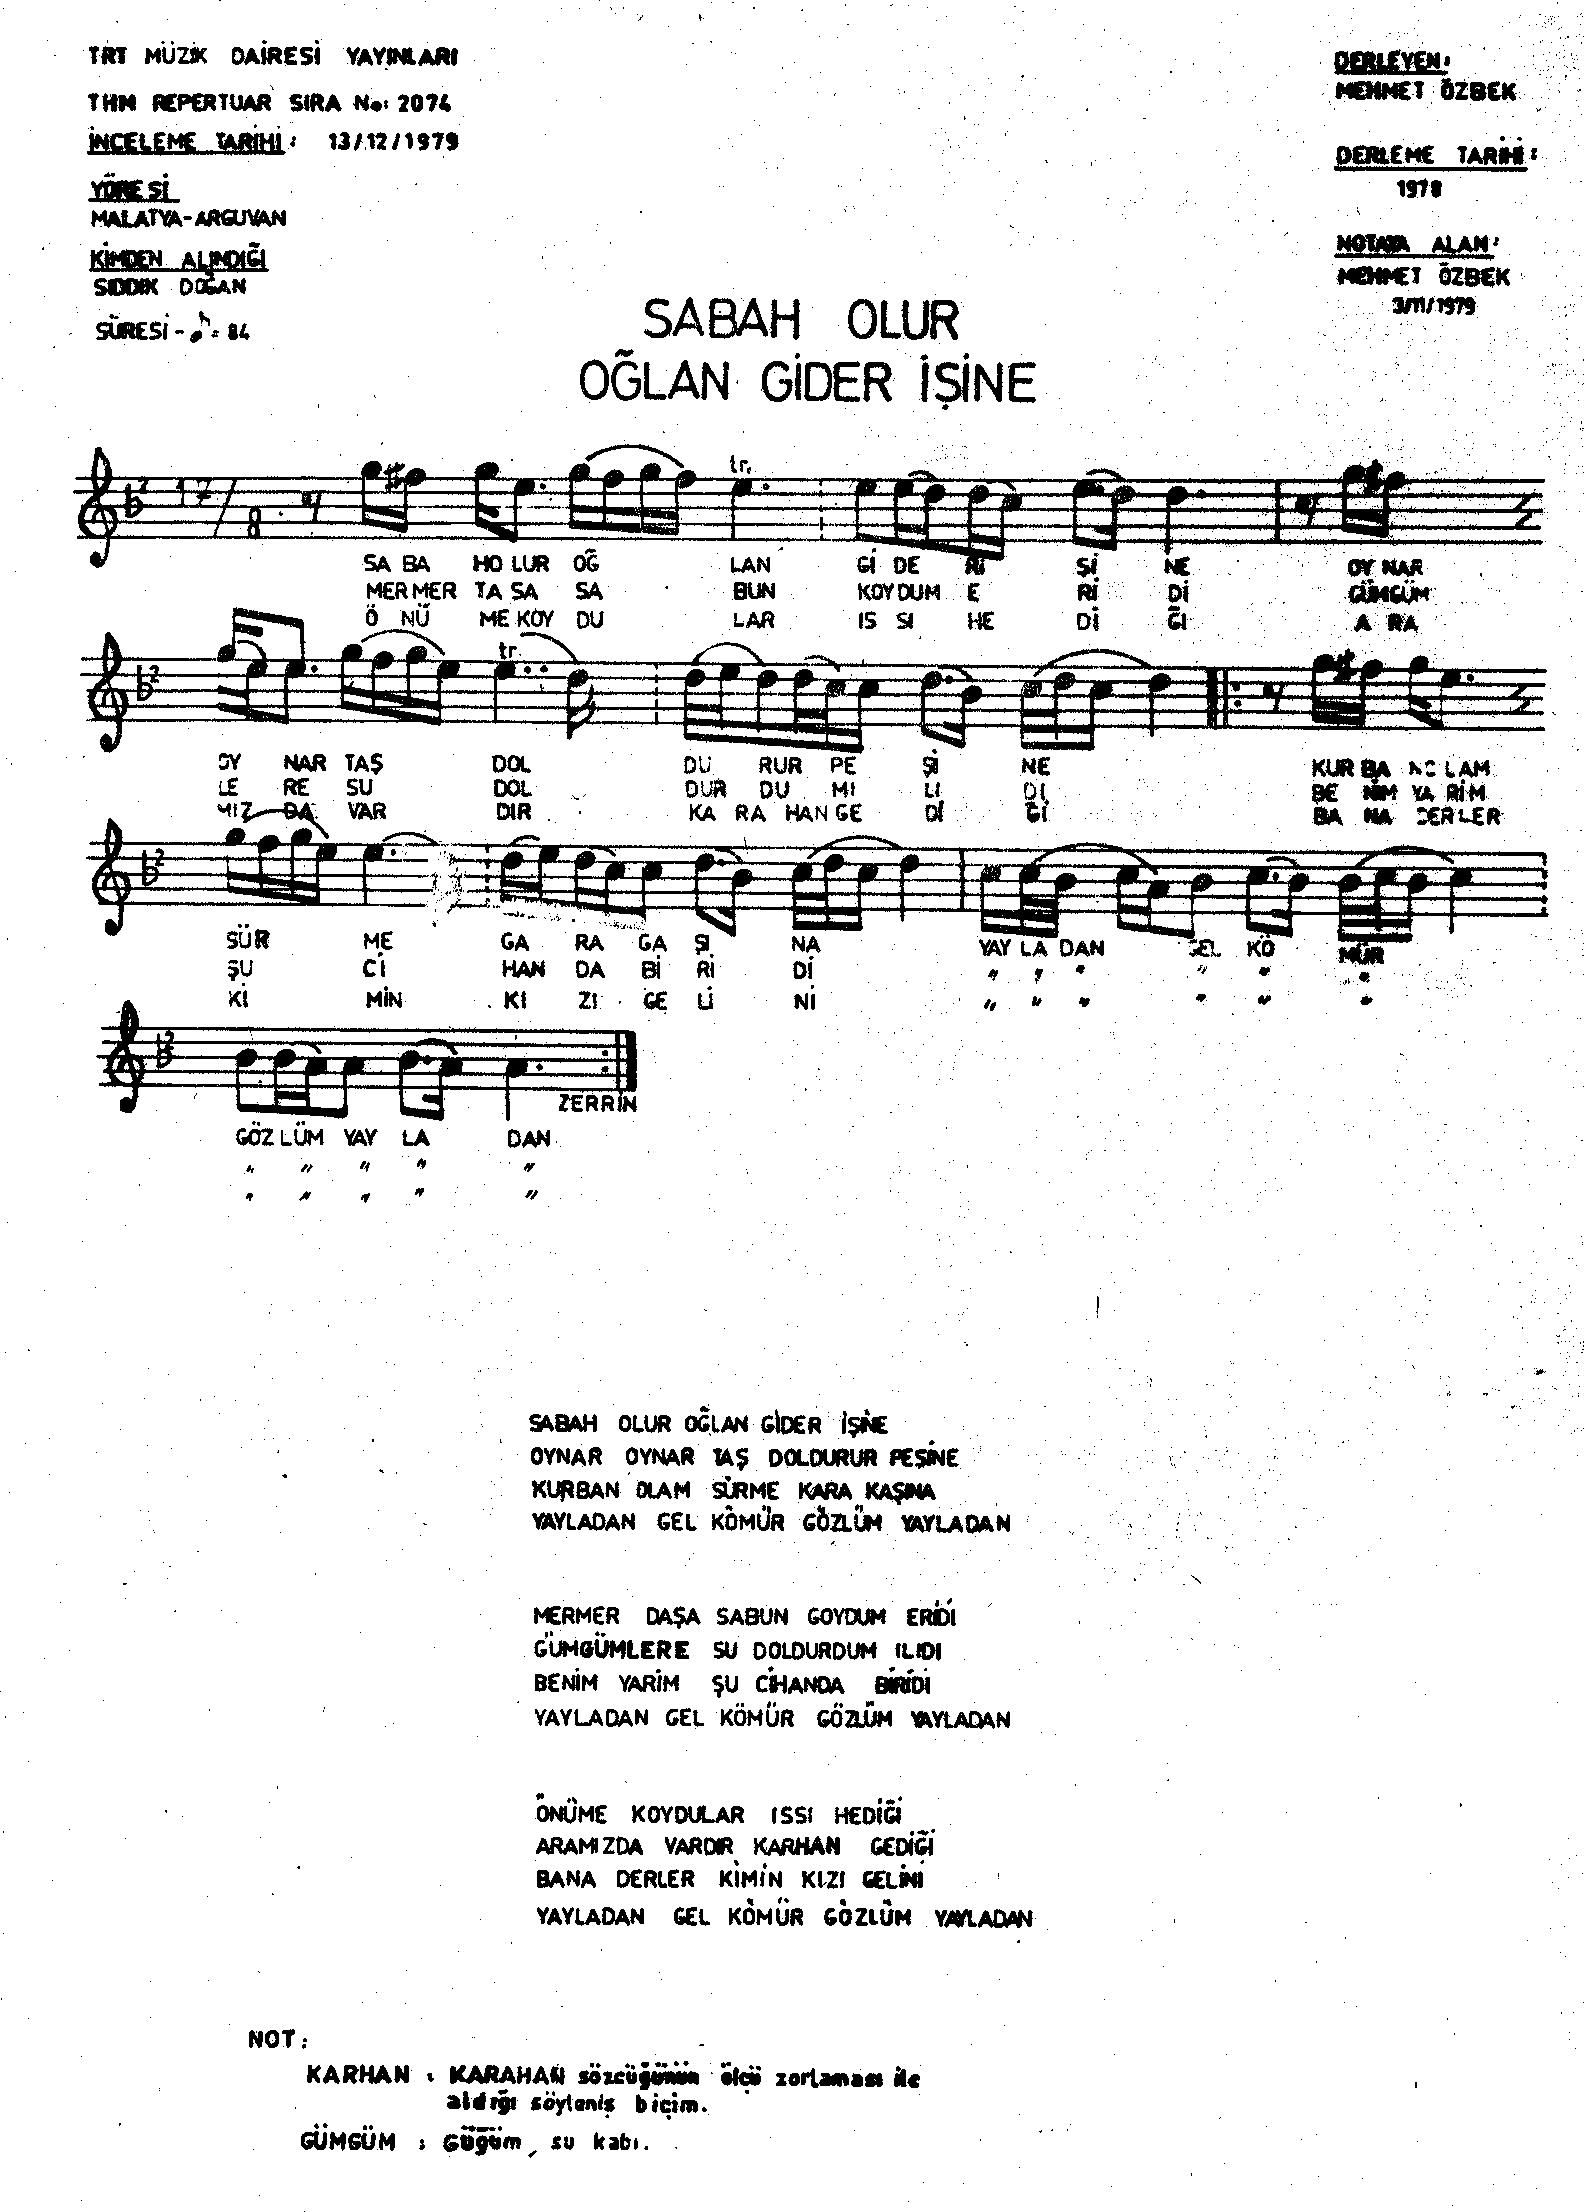 TRT MÜZİK DAİRESİ YAYINLARI
THM REPERTUAR SIRA No: 2074
İNCELEME TARİHİ: 13/12/1979
YÖRESİ
MALATYA-ARGUVAN
KİMDEN ALINDIĞI
SIDDIK DOĞAN
SÜRESİ - ♪ = 84
DERLEYEN:
MEHMET ÖZBEK
DERLEME TARİHİ:
1978
NOTAYA ALAN:
MEHMET ÖZBEK
3/11/1979
SABAH OLUR
OĞLAN GİDER İŞİNE
17/8
tr.
SA BA HO LUR OĞ LAN Gİ DE Rİ Şİ NE OY NAR
MER MER TA SA SA BUN KOY DUM E Rİ Dİ GÜMGÜM
Ö NÜ ME KOY DU LAR IS SI HE Dİ Ğİ A RA
tr.
OY NAR TAŞ DOL DU RUR PE Şİ NE KUR BA NO LAM
LE RE SU DOL DUR DU MI LI DI BE NİM YA RİM
MIZ DA VAR DIR KA RA HAN GE Dİ Ğİ BA NA DERLER
SÜR ME GA RA GA ŞI NA YAY LA DAN GEL KÖ MÜR
ŞU Cİ HAN DA Bİ Rİ Dİ " " " " " "
Kİ MİN KI ZI GE Lİ Nİ " " " " " "
ZERRİN
GÖZ LÜM YAY LA DAN
" " " " "
" " " " "
SABAH OLUR OĞLAN GİDER İŞİNE
OYNAR OYNAR TAŞ DOLDURUR PEŞİNE
KURBAN OLAM SÜRME KARA KAŞINA
YAYLADAN GEL KÖMÜR GÖZLÜM YAYLADAN
MERMER DAŞA SABUN GOYDUM ERİDİ
GÜMGÜMLERE SU DOLDURDUM ILIDI
BENİM YARİM ŞU CİHANDA BİRİDİ
YAYLADAN GEL KÖMÜR GÖZLÜM YAYLADAN
ÖNÜME KOYDULAR ISSI HEDİĞİ
ARAMIZDA VARDIR KARHAN GEDİĞİ
BANA DERLER KİMİN KIZI GELİNİ
YAYLADAN GEL KÖMÜR GÖZLÜM YAYLADAN
NOT:
KARHAN : KARAHAN sözcüğünün ölçü zorlaması ile
aldığı söyleniş biçim.
GÜMGÜM : Güğüm, su kabı.